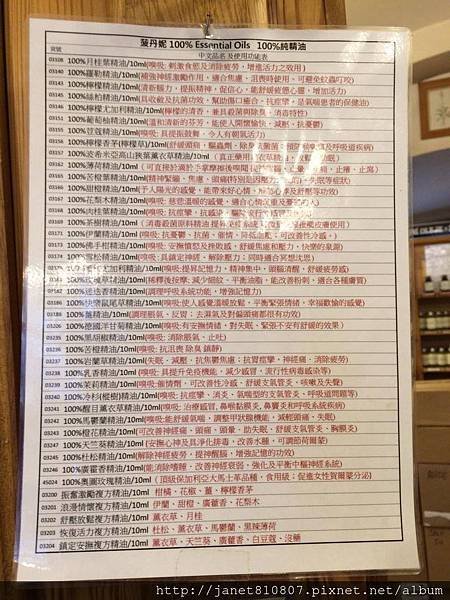 菠丹妮 100% Essential Oils 100%純精油
中文品名 及使用功能表
貨號
03108 100%月桂葉精油/10ml(嗅吸: 刺激食慾及消除疲勞,增進活力之效用)
03140 100%羅勒精油/10ml(補強神經激勵作用,適合焦慮、沮喪時使用,可避免蚊蟲叮咬)
100%檸檬精油/10ml(清新腦力,提振精神,促信心,能舒緩疲憊心靈,增加活力)
100%絲柏精油/10ml(具收斂及抗菌功效,幫助傷口癒合、抗痙攣,是氣喘患者的保健油)
03146 100%檸檬尤加利精油/10ml(檸檬的清香,兼具殺菌與除臭、消毒特性)
03151 100%葡萄柚精油/10ml(溫和清新的芬芳,能使人開懷愉快、減壓、抗憂鬱)
100%荳蔻精油/10ml(嗅吸: 具提振鼓舞,令人有朝氣活力)
100%檸檬香茅(檸檬草)/10ml(舒緩頭痛,驅蟲劑、除臭
100%波希米亞高山狹葉薰衣草精油/10ml
100%薄荷精油/10ml(可直接於滴於手掌摩擦後嗅聞
100%苦橙葉精油/10ml(精神緊繃、焦慮、頭痛特別是因壓力
100%甜橙精油/10ml(予人陽光的感覺,能帶來好心情
100%花梨木精油/10ml(嗅吸: 慈悲溫暖的感覺,適合心情沉重
100%肉桂葉精油/10ml(嗅吸: 抗痙攣、抗感染
03169 100%茶樹精油/10ml
100%伊蘭精油/10ml(嗅吸: 抗憂鬱、抗菌、催情、降低血壓
100%佛手柑精油/10ml(嗅吸: 安撫憤怒及挫敗感、舒緩焦慮和壓力,快樂的泉源)
100%雪松精油/10ml(嗅吸: 具鎮定神經,解除壓力;同時適合冥想沈思)
尤加利精油/10ml(嗅吸:提昇記憶力、精神集中、頭腦清醒,舒緩疲勞感)
玫瑰草精油/10ml
迷迭香精油/10ml(調理呼吸系統功能,增強記憶力)
03186 100%快樂鼠尾草精油/10ml(嗅吸: 使人感覺溫暖放鬆、平衡緊張情緒,幸福歡愉的感覺)
03188 100%薑精油/10ml(調理脹氣、反胃;去濕氣及對偏頭痛都很有功效)
03206 100%德國洋甘菊精油/10ml(嗅吸:有安撫情緒,對失眠、緊張不安有舒緩的效果)
100%黑胡椒精油/10ml(嗅吸: 消除脹氣、止吐)
03236 100%苦橙精油/10ml(嗅吸: 抗沮喪 除臭 鎮靜)
100%岩蘭草精油/10ml(失眠、減壓、抗焦慮;抗胃痙攣、神經痛、消除疲勞)
100%乳香精油/10ml(嗅吸: 具提升免疫機能,減少感冒,流行性病毒感染等)
100%茉莉精油/10ml(嗅吸:催情劑,可改善性冷感,舒緩支氣管炎、咳嗽及失聲)
03240 100%冷杉(樅樹)精油/10ml(嗅吸: 抗痙攣、消炎、氣喘型的支氣管炎、呼吸道問題等)
03241 100%醒目薰衣草精油/10ml(嗅吸: 治療感冒,鼻喉黏膜炎,鼻竇炎和呼吸系統疾病)
03242 100%馬鬱蘭精油/10ml(嗅吸:能舒緩氣喘,調整甲狀腺機能、減輕頭痛、失眠)
03244 100%橙花精油/10ml(可改善神經痛、頭痛、頭暈、助失眠、舒緩支氣管炎、胸膜炎)
100%天竺葵精油/10ml(安撫心神及具淨化排毒,改善水腫,可調節荷爾蒙)
03245 100%杜松精油/10ml(解除神經疲勞,提神醒腦,增強記憶的功效)
03246 100%廣藿香精油/10ml(能消除嗜睡,改善神經衰弱、強化及平衡中樞神經系統)
45024 100%奧圖玫瑰精油/10ml(頂級保加利亞大馬士革品種,食用級;促進女性賀爾蒙分泌)
03200 振奮激勵複方精油/10ml 柑橘、花椒、薑、檸檬香茅
03201 浪漫情懷複方精油/10ml 伊蘭、甜橙、廣藿香、花梨木
03202 舒壓放鬆複方精油/10ml 薰衣草、月桂
03203 恢復活力複方精油/10ml 杜松、薰衣草、馬鬱蘭、黑辣薄荷
03204 鎮定安撫複方精油/10ml 薰衣草、天竺葵、廣藿香、白荳蔻、沒藥
http://janet810807.pixnet.net/album